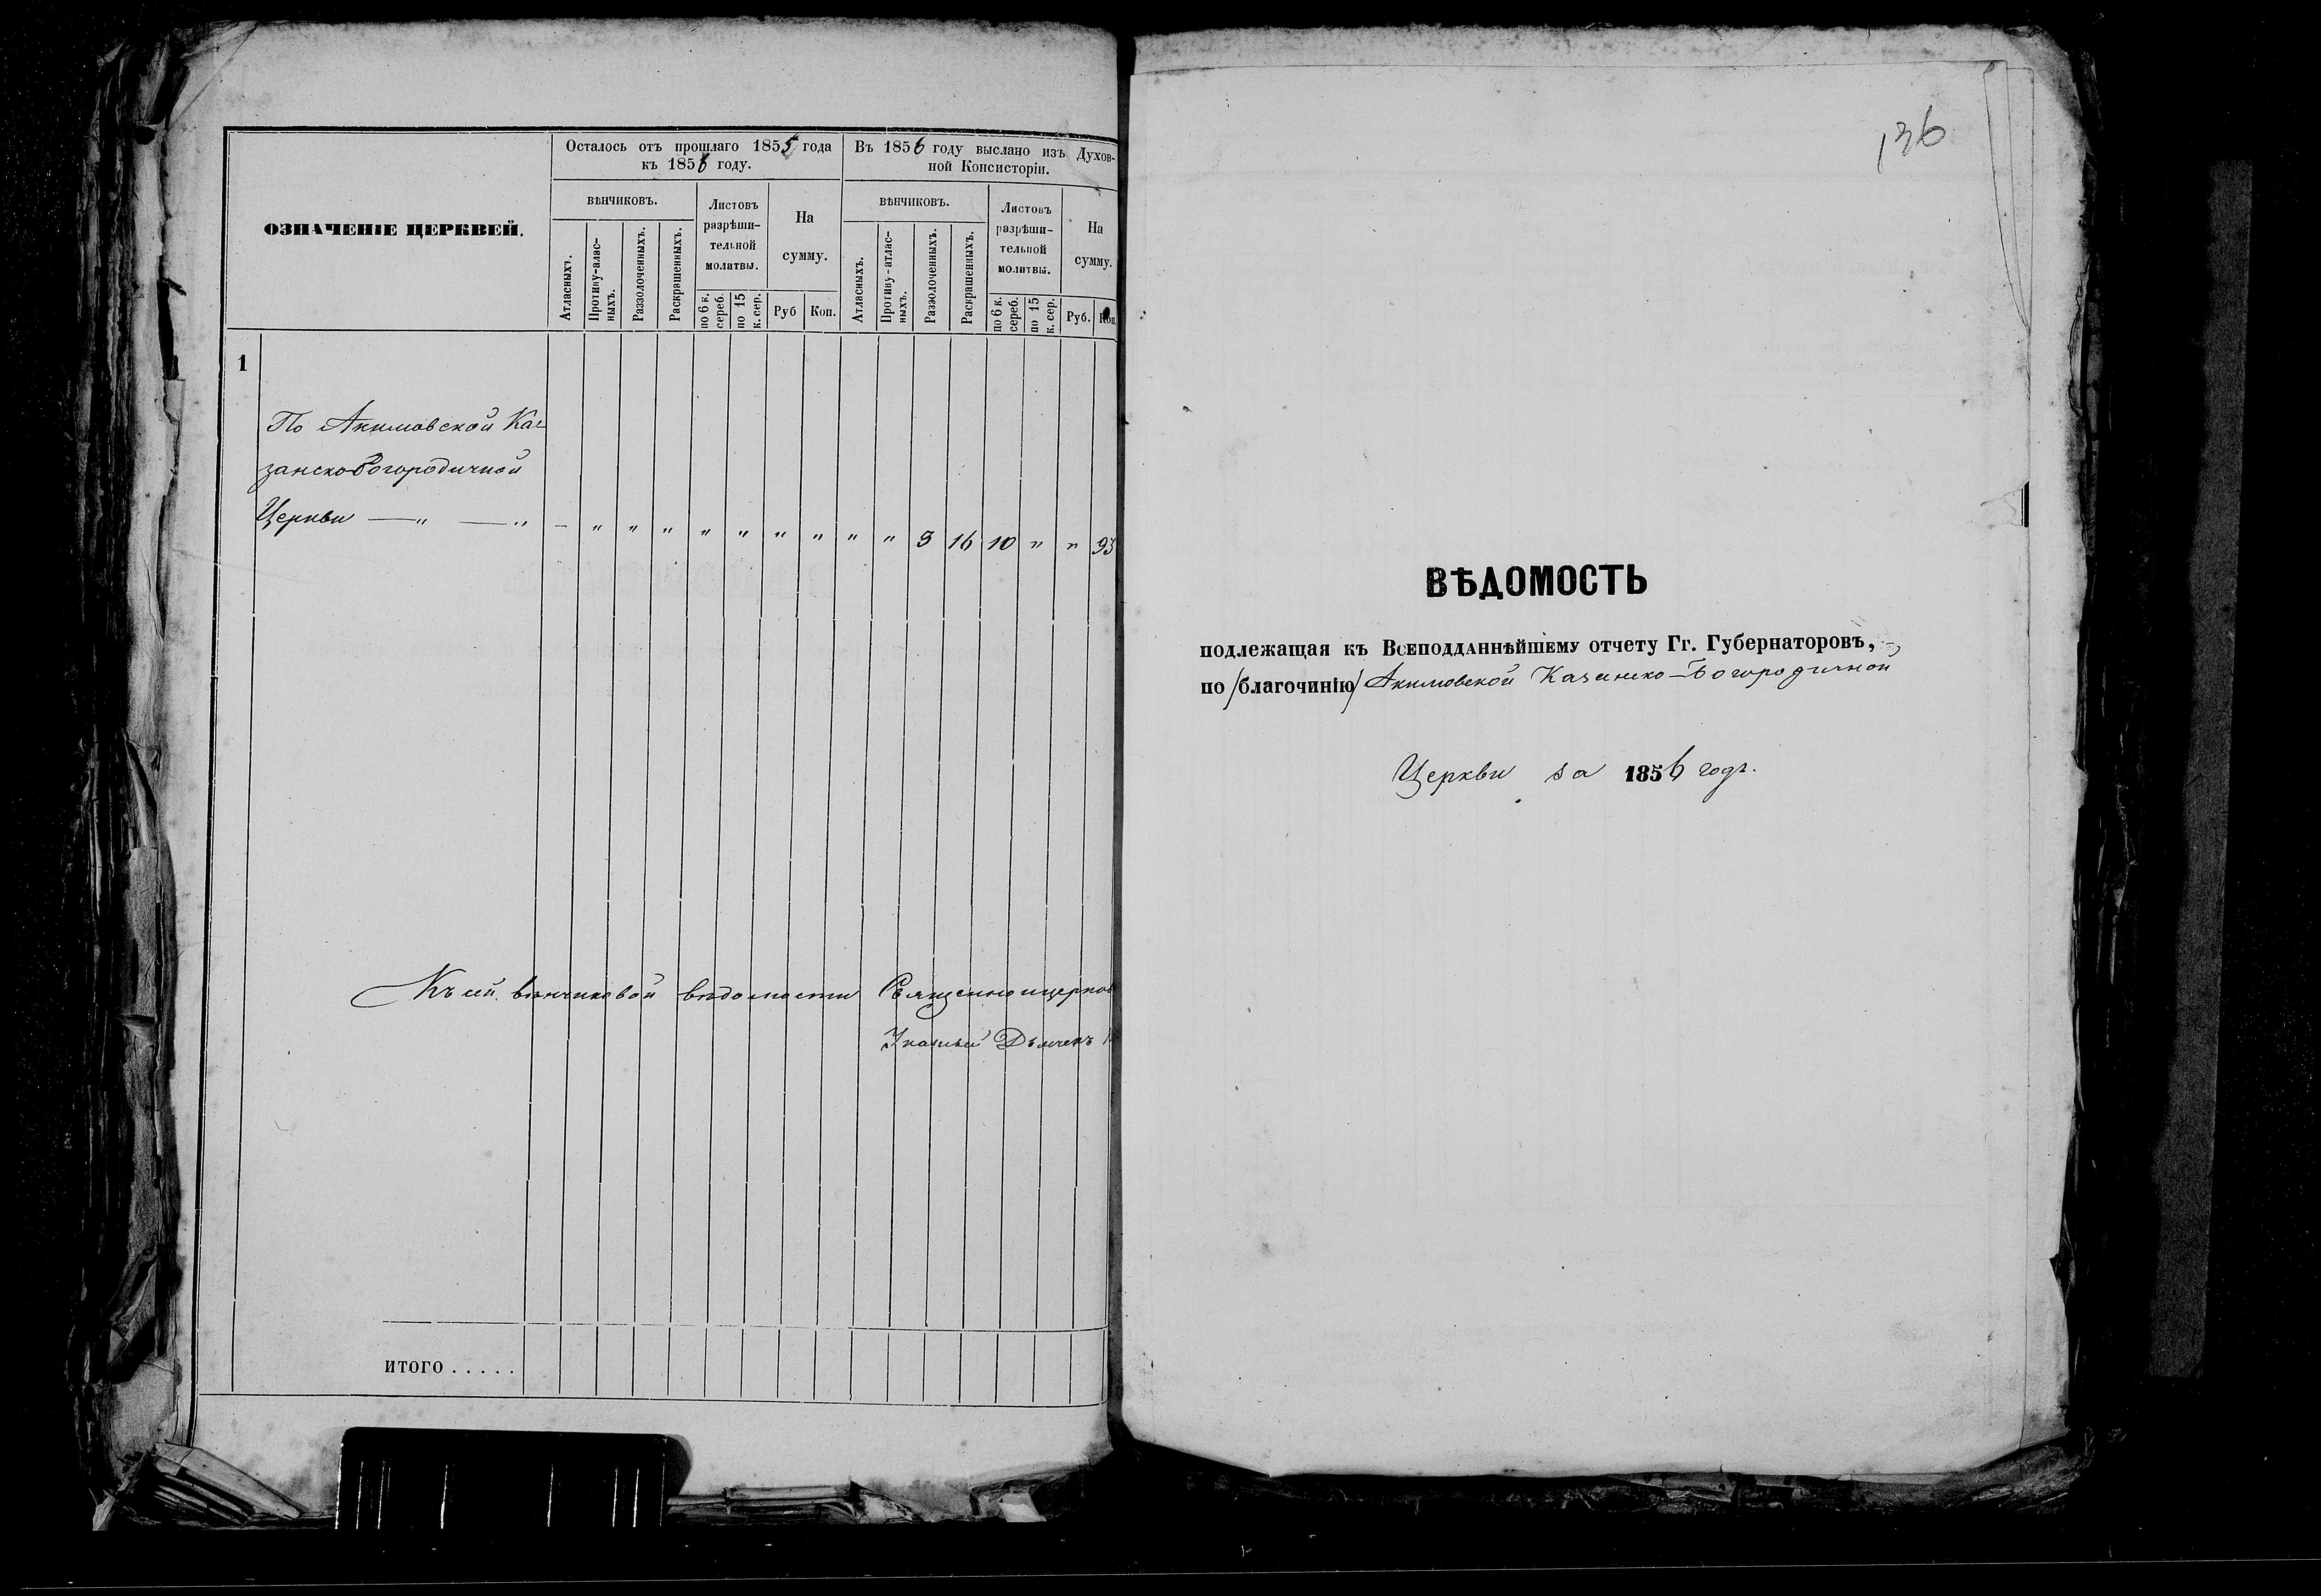 ОЗНАЧЕНІЕ ЦЕРКВЕЙ.
Осталось отъ прошлаго 1855 года
къ 1856 году.
ВѢНЧИКОВЪ.
Атласныхъ.
Противу-алас-
ныхъ.
Раззолоченныхъ.
Раскрашенныхъ.
Листовъ
разрѣши-
тельной
молитвы.
по 6 к.
сереб.
по 15
к. сер.
На
сумму.
Руб
Коп.
Въ 1856 году выслано изъ Духов-
ной Консисторіи.
ВѢНЧИКОВЪ.
Атласныхъ.
Противу-атлас-
ныхъ.
Раззолоченныхъ.
Раскрашенныхъ.
Листовъ
разрѣши-
тельной
молитвы.
по 6 к.
сереб.
по 15
к. сер.
На
сумму.
Руб.
Коп.
1
По Акимовской Ка-
занскоБогородичной
Церкви — " — " — " " " " " " " " " 3 16 10 " " 93
Къ сей вѣнчиковой вѣдомости Священноцерков
Дьячекъ
ИТОГО . . . . .
136
ВѢДОМОСТЬ
подлежащая къ Всеподданнѣйшему отчету Гг. Губернаторовъ,
по /благочинію/ Акимовской Казанско-Богородичной
Церкви за 1856 годъ.